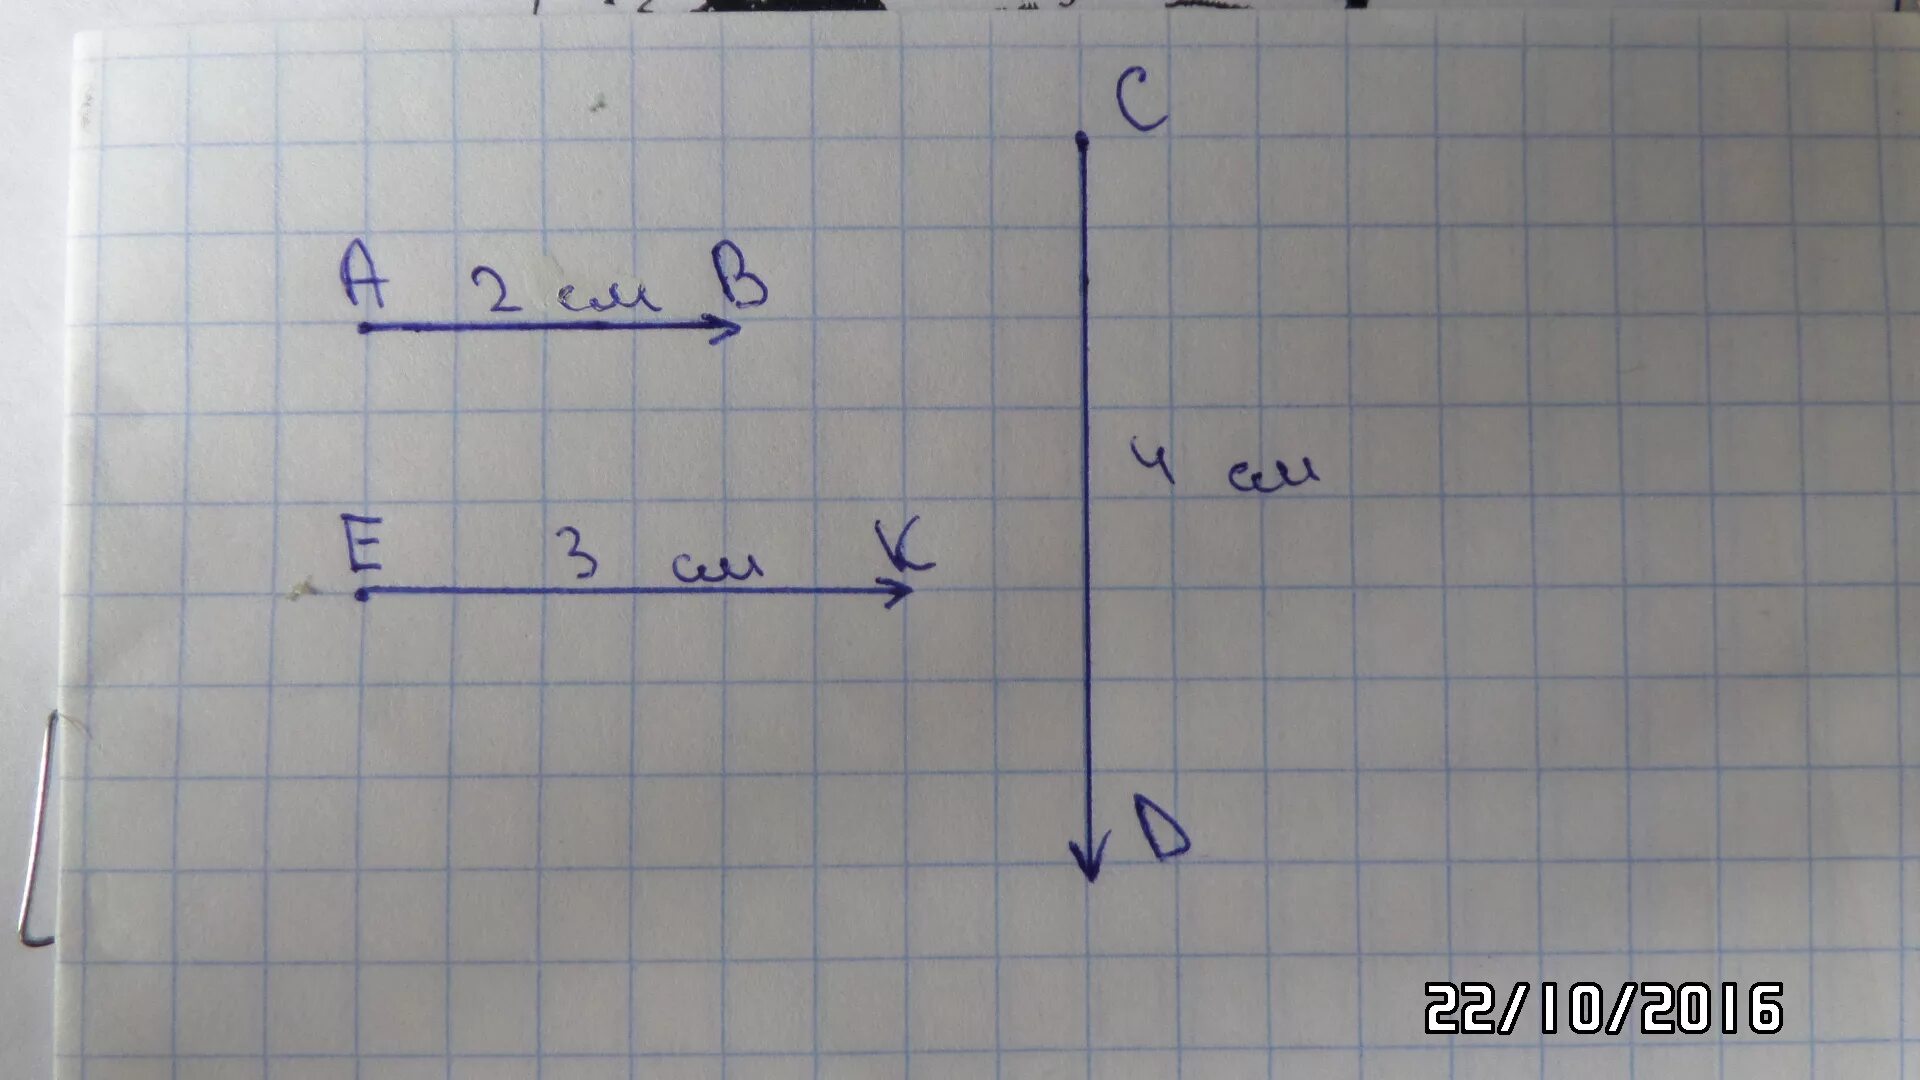 C
A 2 см B
4 см
E 3 см K
D
22/10/2016